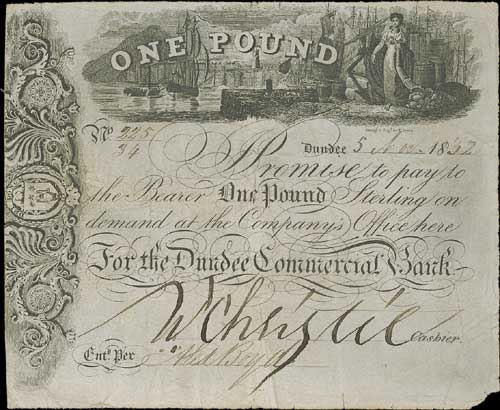 ONE POUND
No 225/34
Dundee 5 Nov. 18
I Promise to pay to
the Bearer One Pound Sterling on
demand at the Company's Office here
For the Dundee Commercial Bank
W Christie Cashier.
Entd. Per